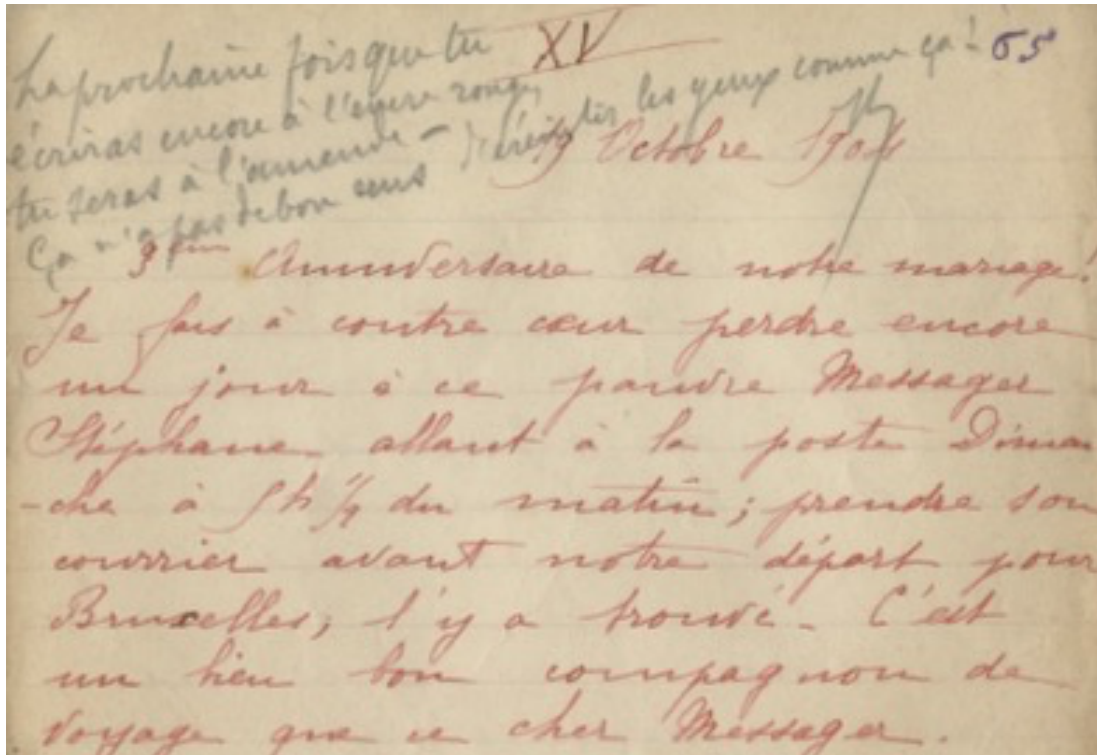 XV
65
La prochaine fois que tu
écriras encore à l'encre rouge,
tu seras à l'amende –
Ça n'a pas de bon sens d'éreinter les yeux comme ça !
19 Octobre 1904
3ème Anniversaire de notre mariage!
Je fais à contre cœur perdre encore
un jour à ce pauvre Messager
Stéphane allant à la poste Diman
-che à 5h 1/4 du matin ; prendre son
courrier avant notre départ pour
Bruxelles, l'y a trouvé. C'est
un bien bon compagnon de
voyage que ce cher Messager.